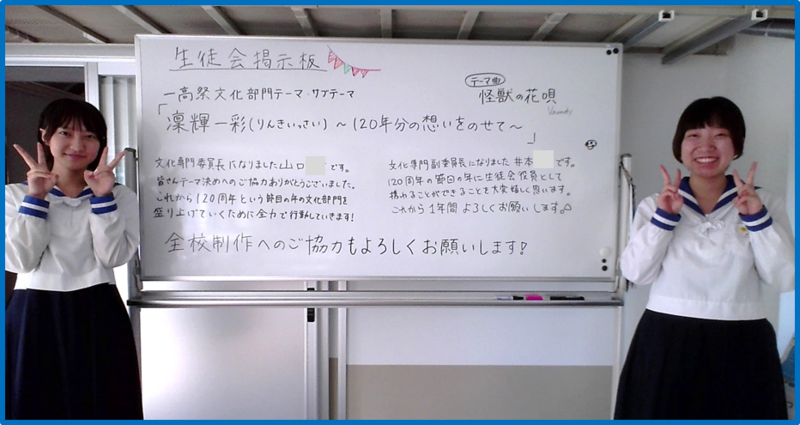 生徒会掲示板
一高祭文化部門テーマ・サブテーマ
テーマ曲
怪獣の花唄
Vaundy
「凛輝一彩(りんきいっさい)～120年分の想いをのせて～」
文化専門委員長になりました山口です。
皆さんテーマ決めへのご協力ありがとうございました。
これから120周年という節目の年の文化部門を
盛り上げていくために全力で行動していきます!
文化専門副委員長になりました井本です。
120周年の節目の年に生徒会役員として
携わることができることを大変嬉しく思います。
これから1年間よろしくお願いします。
全校制作へのご協力もよろしくお願いします!